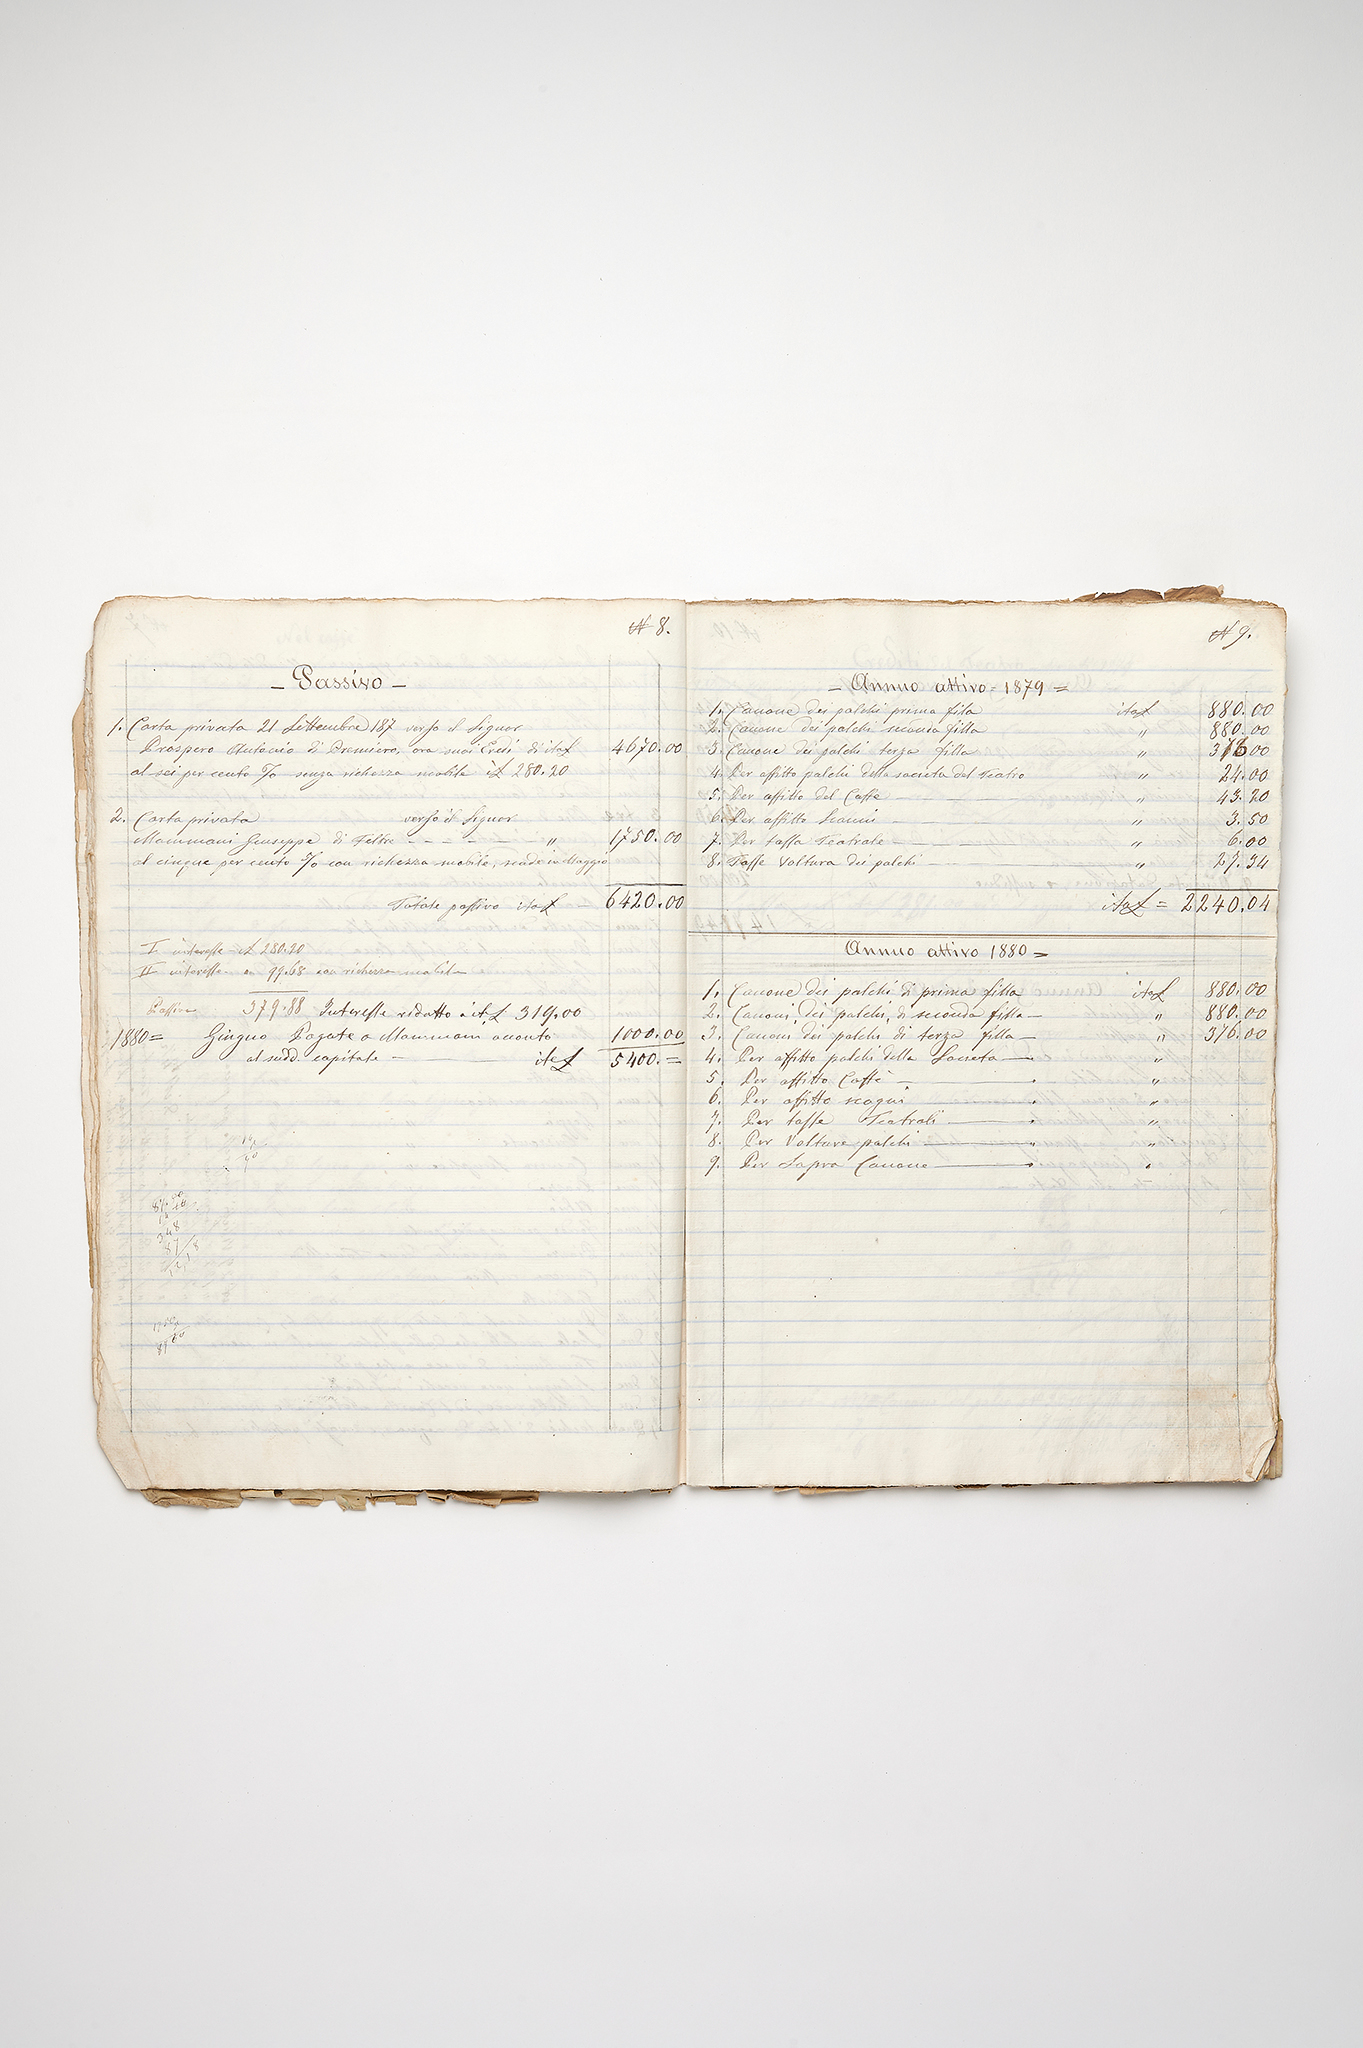 N 8.
- Passivo -
1. Carta privata 21 Settembre 187 verso il Signor
Prospero Antonio di Primiero, ora suoi Eredi di ita£ 4670.00
al sei per cento % senza richezza mobile it£ 280.20
2. Carta privata verso il Signor
Mammani Giuseppe di Feltre - - - - - " 1750.00
al cinque per cento % con richezza mobile, scade in Maggio
Totale passivo ita£ - 6420.00
I interesse it£ 280.20
II interesse " 99.68 con richezza mobile
Passivo 379.88 Interesse ridotto a it£ 319.00
1880= Giugno Pagate a Mammani acconto 1000.00
al sudd. capitale - it£ 5400.=
348
87
1218
N 9.
- Annuo attivo = 1879 =
1. Canone dei palchi prima fila ita£ 880.00
2. Canone dei palchi seconda filla " 880.00
3. Canone dei palchi terza filla " 376.00
4. Per affitto palchi della società del Teatro " 24.00
5. Per affitto del Caffè - " 43.20
6. Per affitto Scanni - " 3.50
7. Per tassa Teatrale - " 6.00
8. Tasse Voltura dei palchi - " 27.34
ita£ = 2240.04
Annuo attivo 1880 =
1. Canone dei palchi di prima filla ita£ 880.00
2. Canoni, dei palchi, di seconda filla - " 880.00
3. Canoni dei palchi di terza filla - " 376.00
4. Per affitto palchi della Società - "
5. Per affitto Caffè - "
6. Per affitto scagni - "
7. Per tasse Teatrali - "
8. Per Volture palchi - "
9. Per Sopra Canone - "